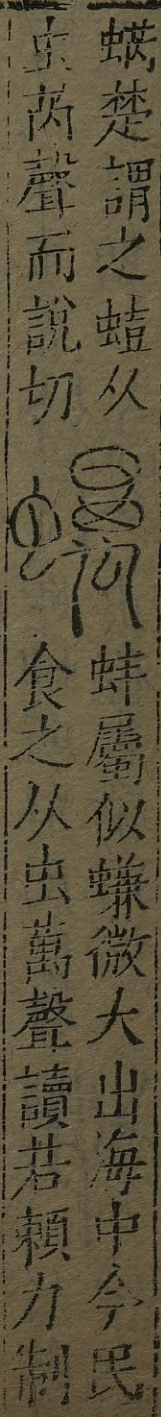 蜹楚謂之从
虫芮聲而說切
蚌屬似螊微大出海中今民
食之从虫萬聲讀若賴力制